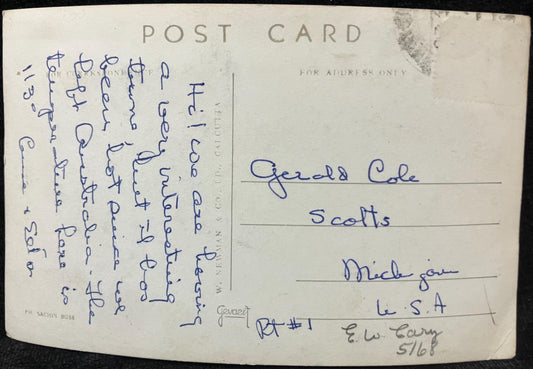 POST CARD
FOR CORRESPONDENCE
FOR ADDRESS ONLY
Hi! We are having
a very interesting
time, but it has
been hot since we
left Australia. The
temperature here is
113°
W. NEWMAN & CO. LTD., CALCUTTA
Gevaert
Gerald Cole
Scotts
Michigan
U.S.A
Rt #1
E. W. Cary
5/68